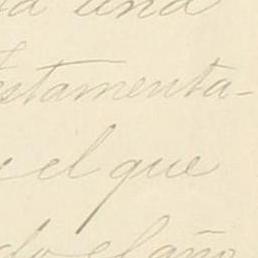 una
estamenta-
el que
do el año